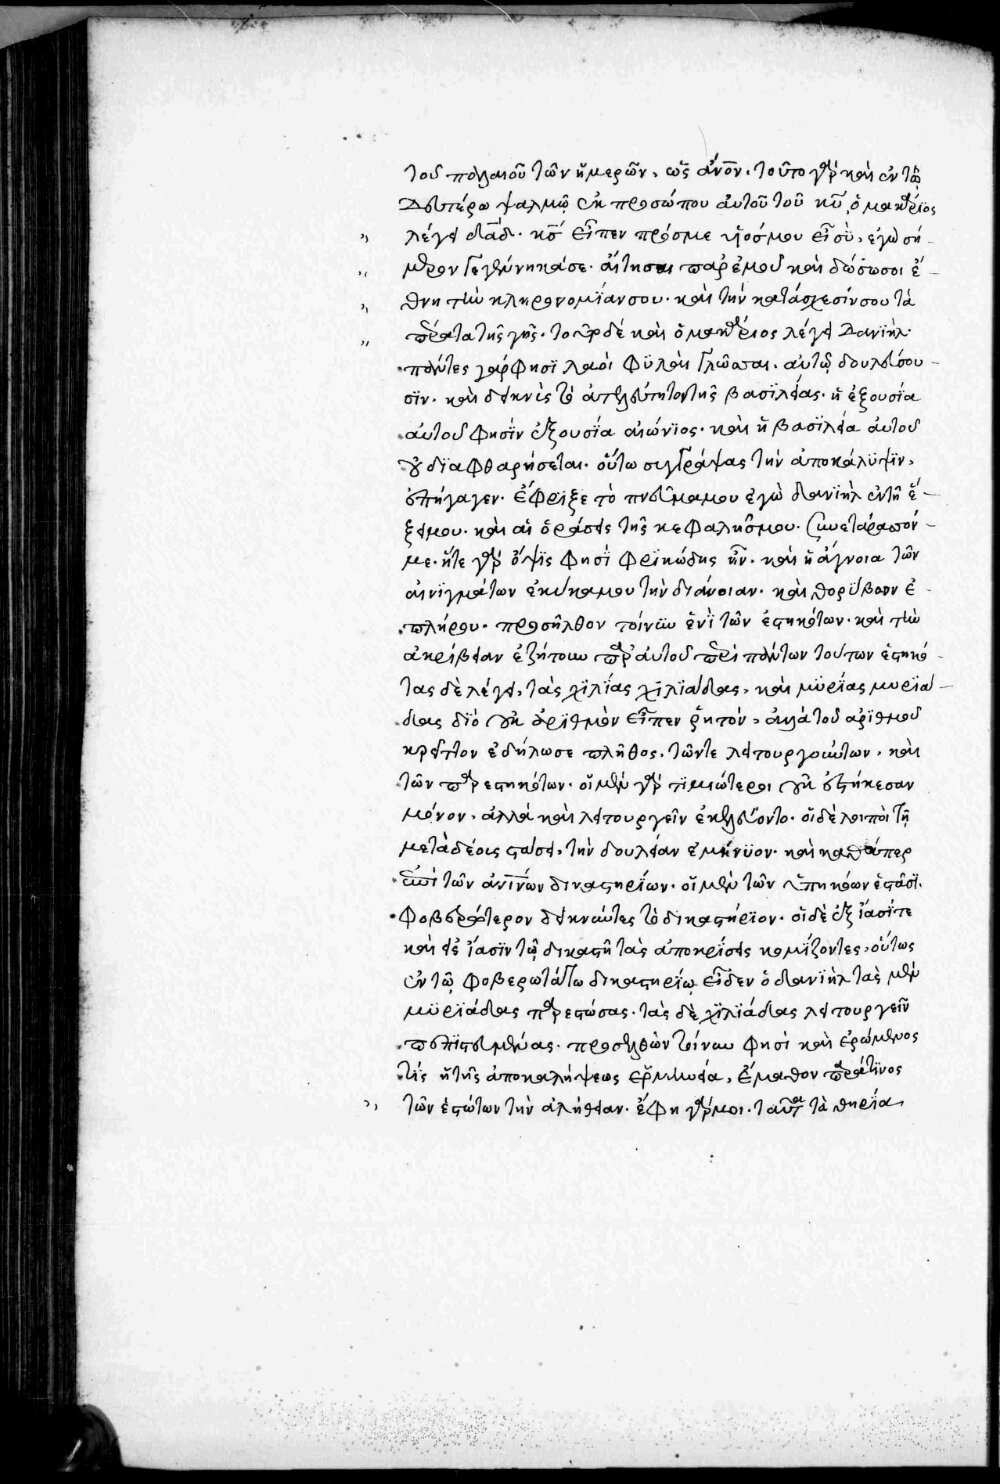 τοῦ παλαιοῦ τῶν ἡμερῶν, ὡς ἄνον· τοῦτο γὰρ καὶ ἐν τῷ
δευτέρω ψαλμῷ ἐκ προσώπου αὐτοῦ τοῦ κυ, ὁ μακάριος
λέγει δαδ· κς εἶπεν πρόσμε υἱόσμου εἶ σὺ, ἐγὼ σή-
μερον γεγέννηκάσε· αἴτησαι παρ' ἐμοῦ καὶ δώσωσοι ἔ-
θνη τὴν κληρονομίαν σου· καὶ τὴν κατάσχεσίν σου τὰ
πέρατα τῆς γῆς· τοῦτο δὲ καὶ ὁ μακάριος λέγει Δανιὴλ·
πάντες γάρ φησι λαοὶ φυλαὶ γλῶσσαι, αὐτῷ δουλεύσου-
σιν· καὶ δεικνὺς τὸ ἀτελεύτητον τῆς βασιλείας· ἡ ἐξουσία
αὐτοῦ φησὶν ἐξουσία αἰώνιος· καὶ ἡ βασιλεία αὐτοῦ
οὐ διαφθαρήσεται· οὕτω συγγράψας τὴν ἀποκάλυψιν,
ἐπήγαγεν· ἔφριξε τὸ πνεῦμαμου ἐγὼ δανιὴλ ἐν τῇ ἕ-
ξειμου· καὶ αἱ ὁράσεις τῆς κεφαλῆσμου· συνετάρασσόν-
με· ἥτε γὰρ ὄψις φησὶ φρικώδης ἦν· καὶ ἡ ἄγνοια τῶν
αἰνιγμάτων ἐκύκαμου τὴν διάνοιαν· καὶ θορύβων ἐ-
πλήρου· προσῆλθον τοίνυν ἑνὶ τῶν ἑστηκότων· καὶ τὴν
ἀκρίβειαν ἐζήτουν παρ' αὐτοῦ περὶ πάντων τούτων ἑστηκό-
τας δὲ λέγει, τὰς χιλίας χιλιάδας, καὶ μυρίας μυριά-
δας διὸ οὐκ ἀριθμὸν εἶπεν ῥητὸν, ἀλλὰ τοῦ ἀριθμοῦ
κρεῖττον ἐδήλωσε πλῆθος, τῶντε λειτουργούντων, καὶ
τῶν παρεστηκότων· οἱ μὲν γὰρ τιμιώτεροι οὐχ ἑστήκεσαν
μόνον, ἀλλὰ καὶ λειτουργεῖν ἐκελεύοντο· οἱ δὲ λοιποὶ τῇ
μετὰ δέους στάσει, τὴν δουλείαν ἐμήνυον· καὶ καθάπερ
ἐπὶ τῶν ἀνίνων δικαστηρίων· οἱ μὲν τῶν ὑπηκόων ἑστᾶσι
φοβερώτερον δεικνύντες τὸ δικαστήριον· οἱ δὲ ἐξίασίτε
καὶ εἰσίασιν τῷ δικαστῇ τὰς ἀποκρίσεις κομίζοντες, οὕτως
ἐν τῷ φοβερωτάτω δικαστηρίῳ εἶδεν ὁ δανιὴλ τὰς μὲν
μυριάδας παρεστώσας· τὰς δὲ χιλιάδας λειτουργεῖν
πεπιστευμένας· προσελθὼν τοίνυν φησὶ καὶ ἐρόμενος
τίς ἡ τῆς ἀποκαλήψεως ἑρμηνεία, ἔμαθον παρά τινος
τῶν ἑστώτων τὴν ἀλήθειαν· ἔφη γάρ μοι· ταῦτα τὰ θηρία